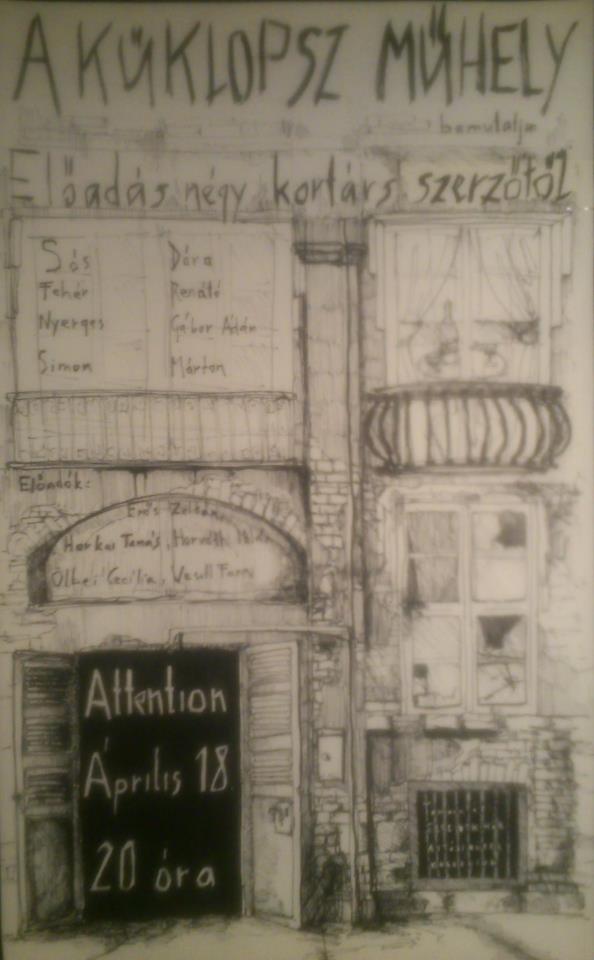 A KÜKLOPSZ MŰHELY
bemutatja
Előadás négy kortárs szerzőtől
Sós Dóra
Fehér Renátó
Nyerges Gábor Ádám
Simon Márton
Előadók:
Erős Zoltán,
Harkai Tamás, Horváth
Ölbei Cecília,
Attention
Április 18
20 óra